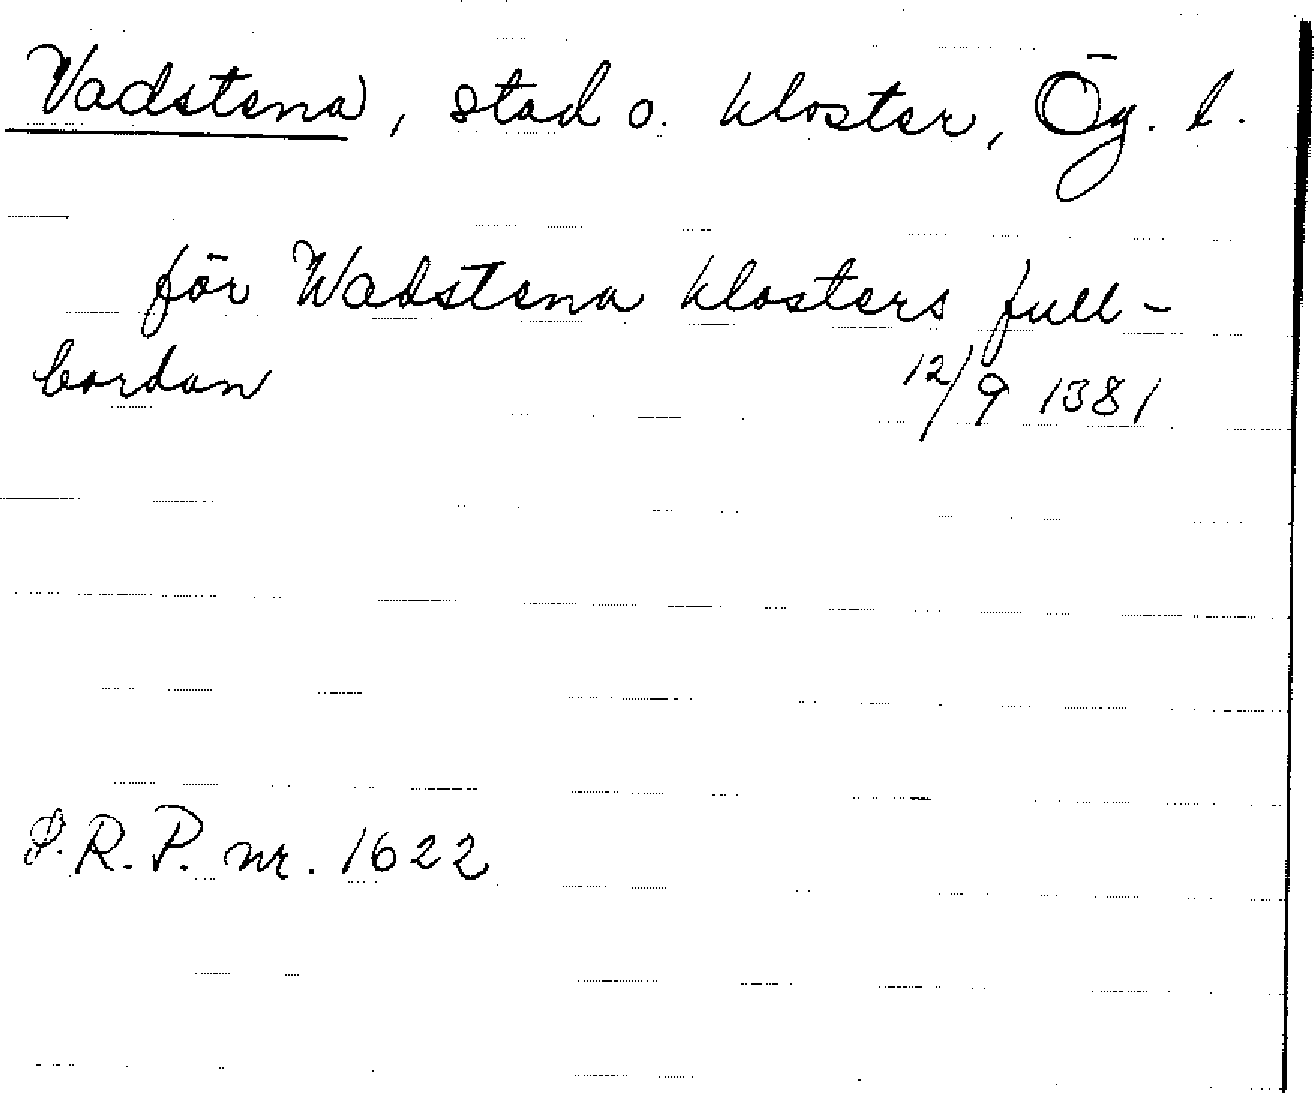 Vadstena, stad o. kloster, Ög. l.
för Wadstena klosters full-
bordan 12/9 1381
S.R.P. nr. 1622